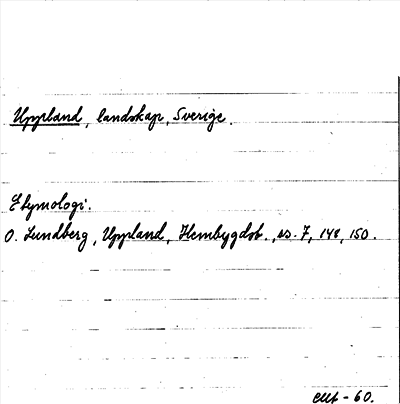 Uppland, landskap, Sverige.
Etymologi.
O. Lundberg, Uppland, Hembygdsb., ss. 7, 148, 150.
- 60.